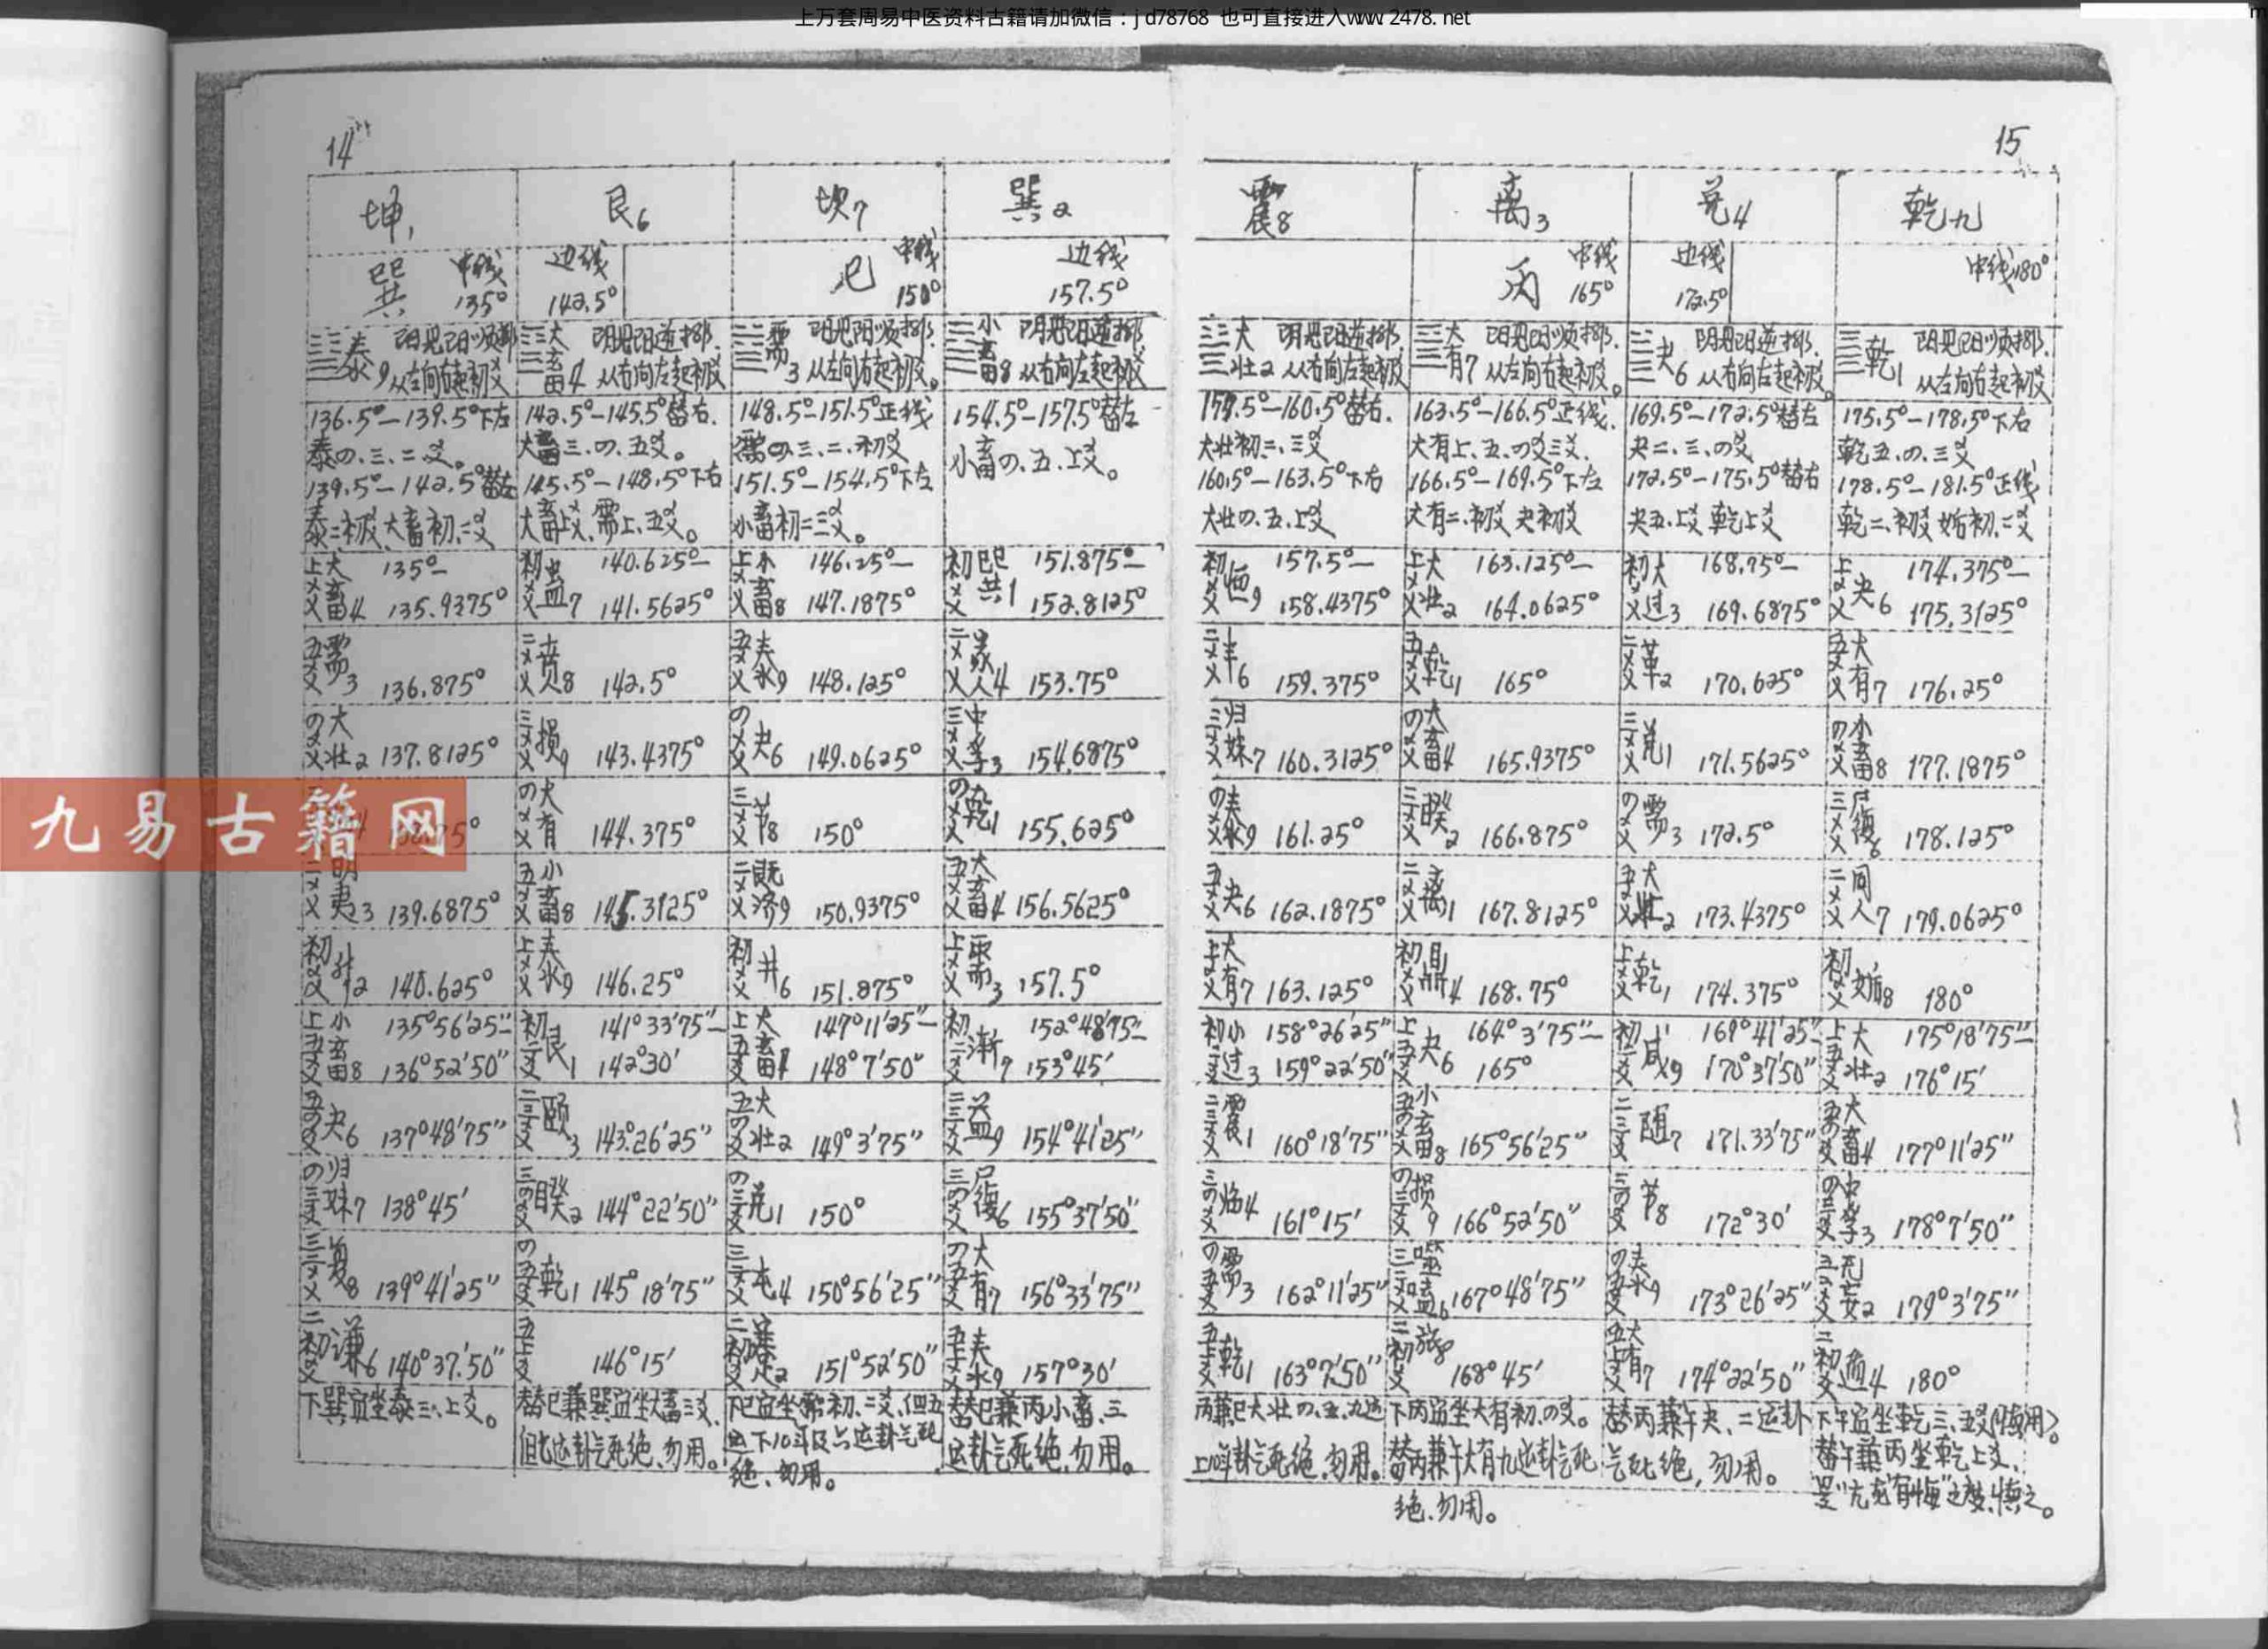 上万套周易中医资料古籍请加微信：jd78768 也可直接进入www.2478.net
14
坤1 艮6 坎7 巽2
巽 中线 135° 边线 142.5° 巳 中线 150° 边线 157.5°
泰9 阳见阳顺挪 从左向右起初爻
大畜4 阴见阳逆挪. 从右向左起初爻
需3 阳见阳顺挪. 从左向右起初爻。
小畜8 阴见阳逆挪. 从右向左起初爻
136.5°–139.5°下左 142.5°–145.5°替右. 148.5°–151.5°正线 154.5°–157.5°替左
泰の.三.二.爻。 大畜三.の.五爻。 需の.三.二.初爻 小畜の.五.上爻。
139.5°–142.5°替左 145.5°–148.5°下右 151.5°–154.5°下左
泰二初爻大畜初.二爻 大畜上爻.需上.五爻。 小畜初二三爻。
上爻大畜4 135°– 135.9375° 初爻蛊7 140.625°– 141.5625° 上爻小畜8 146.25°– 147.1875° 初爻巽1 151.875°– 152.8125°
五爻需3 136.875° 二爻贲8 142.5° 五爻泰9 148.125° 二爻家人4 153.75°
の爻大壮2 137.8125° 三爻损9 143.4375° の爻夬6 149.0625° 三爻中孚3 154.6875°
の爻大有 144.375° 三爻节8 150° の爻乾1 155.625°
二爻明夷3 139.6875° 五爻小畜8 145.3125° 二爻既济9 150.9375° 五爻大畜4 156.5625°
初爻升2 140.625° 上爻泰9 146.25° 初爻井6 151.875° 上爻需3 157.5°
上五爻小畜8 135°56′25″– 136°52′50″ 初二爻艮1 141°33′75″– 142°30′ 上五爻大畜4 147°11′25″– 148°7′50″ 初二爻渐7 152°48′75″– 153°45′
五の爻夬6 137°48′75″ 二三爻颐3 143°26′25″ 五の爻大壮2 149°3′75″ 二三爻益9 154°41′25″
の三爻归妹7 138°45′ 三の爻睽2 144°22′50″ の三爻兑1 150° 三の爻履6 155°37′50″
三二爻复8 139°41′25″ の五爻乾1 145°18′75″ 三二爻屯4 150°56′25″ の五爻大有7 156°33′75″
二初爻谦6 140°37′50″ 五上爻 146°15′ 二初爻蹇2 151°52′50″ 五上爻泰9 157°30′
下巽宜坐泰三、上爻。
替巳兼巽宜坐大畜三爻.
但七运卦气死绝、勿用。
下巳宜坐需初、二爻、但五
运下10年及六运卦气死
绝、勿用。
替巳兼丙小畜、三
运卦气死绝、勿用。
15
震8 离3 兑4 乾九
丙 中线 165° 边线 172.5° 中线180°
大壮2 阴见阳逆挪. 从右向左起初爻
大有7 阳见阳顺挪. 从左向右起初爻。
夬6 阴见阳逆挪. 从右向左起初爻。
乾1 阳见阳顺挪. 从左向右起初爻
157.5°–160.5°替右. 163.5°–166.5°正线. 169.5°–172.5°替左 175.5°–178.5°下右
大壮初二.三爻 大有上.五.の爻三爻. 夬二.三.の爻 乾五.の.三爻
160.5°–163.5°下右 166.5°–169.5°下左 172.5°–175.5°替右 178.5°–181.5°正线
大壮の.五.上爻 大有二.初爻 夬初爻 夬五.上爻 乾上爻 乾二.初爻 姤初.二爻
初爻恒9 157.5°– 158.4375° 上爻大壮2 163.125°– 164.0625° 初爻大过3 168.75°– 169.6875° 上爻夬6 174.375°– 175.3125°
二爻丰6 159.375° 五爻乾1 165° 二爻革2 170.625° 五爻大有7 176.25°
三爻归妹7 160.3125° の爻大畜4 165.9375° 三爻兑1 171.5625° の爻小畜8 177.1875°
の爻泰9 161.25° 三爻睽2 166.875° の爻需3 172.5° 三爻履6 178.125°
五爻夬6 162.1875° 二爻离1 167.8125° 五爻大壮2 173.4375° 二爻同人7 179.0625°
上爻大有7 163.125° 初爻鼎4 168.75° 上爻乾1 174.375° 初爻姤8 180°
初二爻小过3 158°26′25″ 159°22′50″ 上五爻夬6 164°3′75″– 165° 初二爻咸9 169°41′25″– 170°37′50″ 上五爻大壮2 175°18′75″– 176°15′
二三爻震1 160°18′75″ 五の爻小畜8 165°56′25″ 二三爻随7 171.33′75″ 五の爻大畜4 177°11′25″
三の爻临4 161°15′ の三爻损9 166°52′50″ 三の爻节8 172°30′ の三爻中孚3 178°7′50″
の五爻需3 162°11′25″ 三二爻噬嗑6 167°48′75″ の五爻泰9 173°26′25″ 三二爻无妄2 179°3′75″
五上爻乾1 163°7′50″ 二初爻旅8 168°45′ 五上爻大有7 174°22′50″ 二初爻遁4 180°
丙兼巳大壮の.五.九运
上10年卦气死绝.勿用。
下丙宜坐大有初.の爻。
替丙兼午大有九运卦气死
绝.勿用。
替丙兼午夬、二运卦
气死绝，勿用。
下午宜坐乾三、五爻(慎用)。
替午兼丙坐乾上爻.
是“亢龙有悔”之变.慎之。
九易古籍网